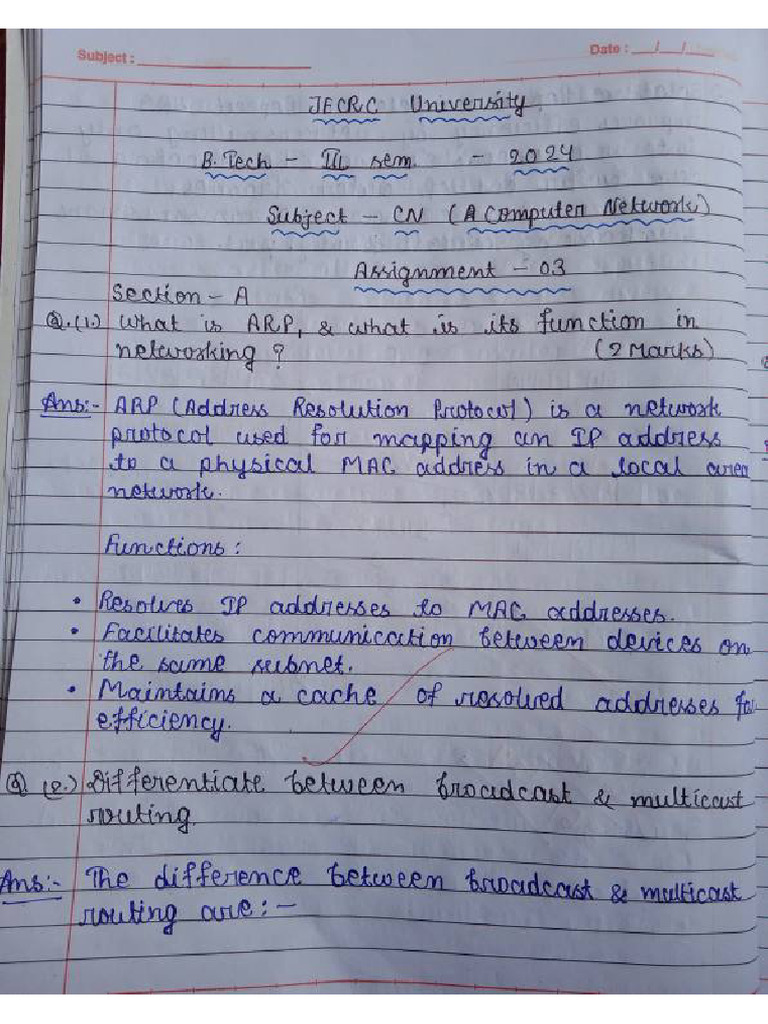 Subject :
Date : __/__/__
JECRC University
B.Tech - III sem - 2024
Subject - CN (A Computer Network)
Assignment - 03
Section - A
Q.(1.) What is ARP, & what is its function in
networking ? (2 Marks)
Ans:- ARP (Address Resolution Protocol) is a network
protocol used for mapping an IP address
to a physical MAC address in a local area
network.
Functions :
• Resolves IP addresses to MAC addresses.
• Facilitates communication between devices on
the same subnet.
• Maintains a cache of resolved addresses for
efficiency.
Q (2.) Differentiate between broadcast & multicast
routing.
Ans:- The difference between broadcast & multicast
routing are :-